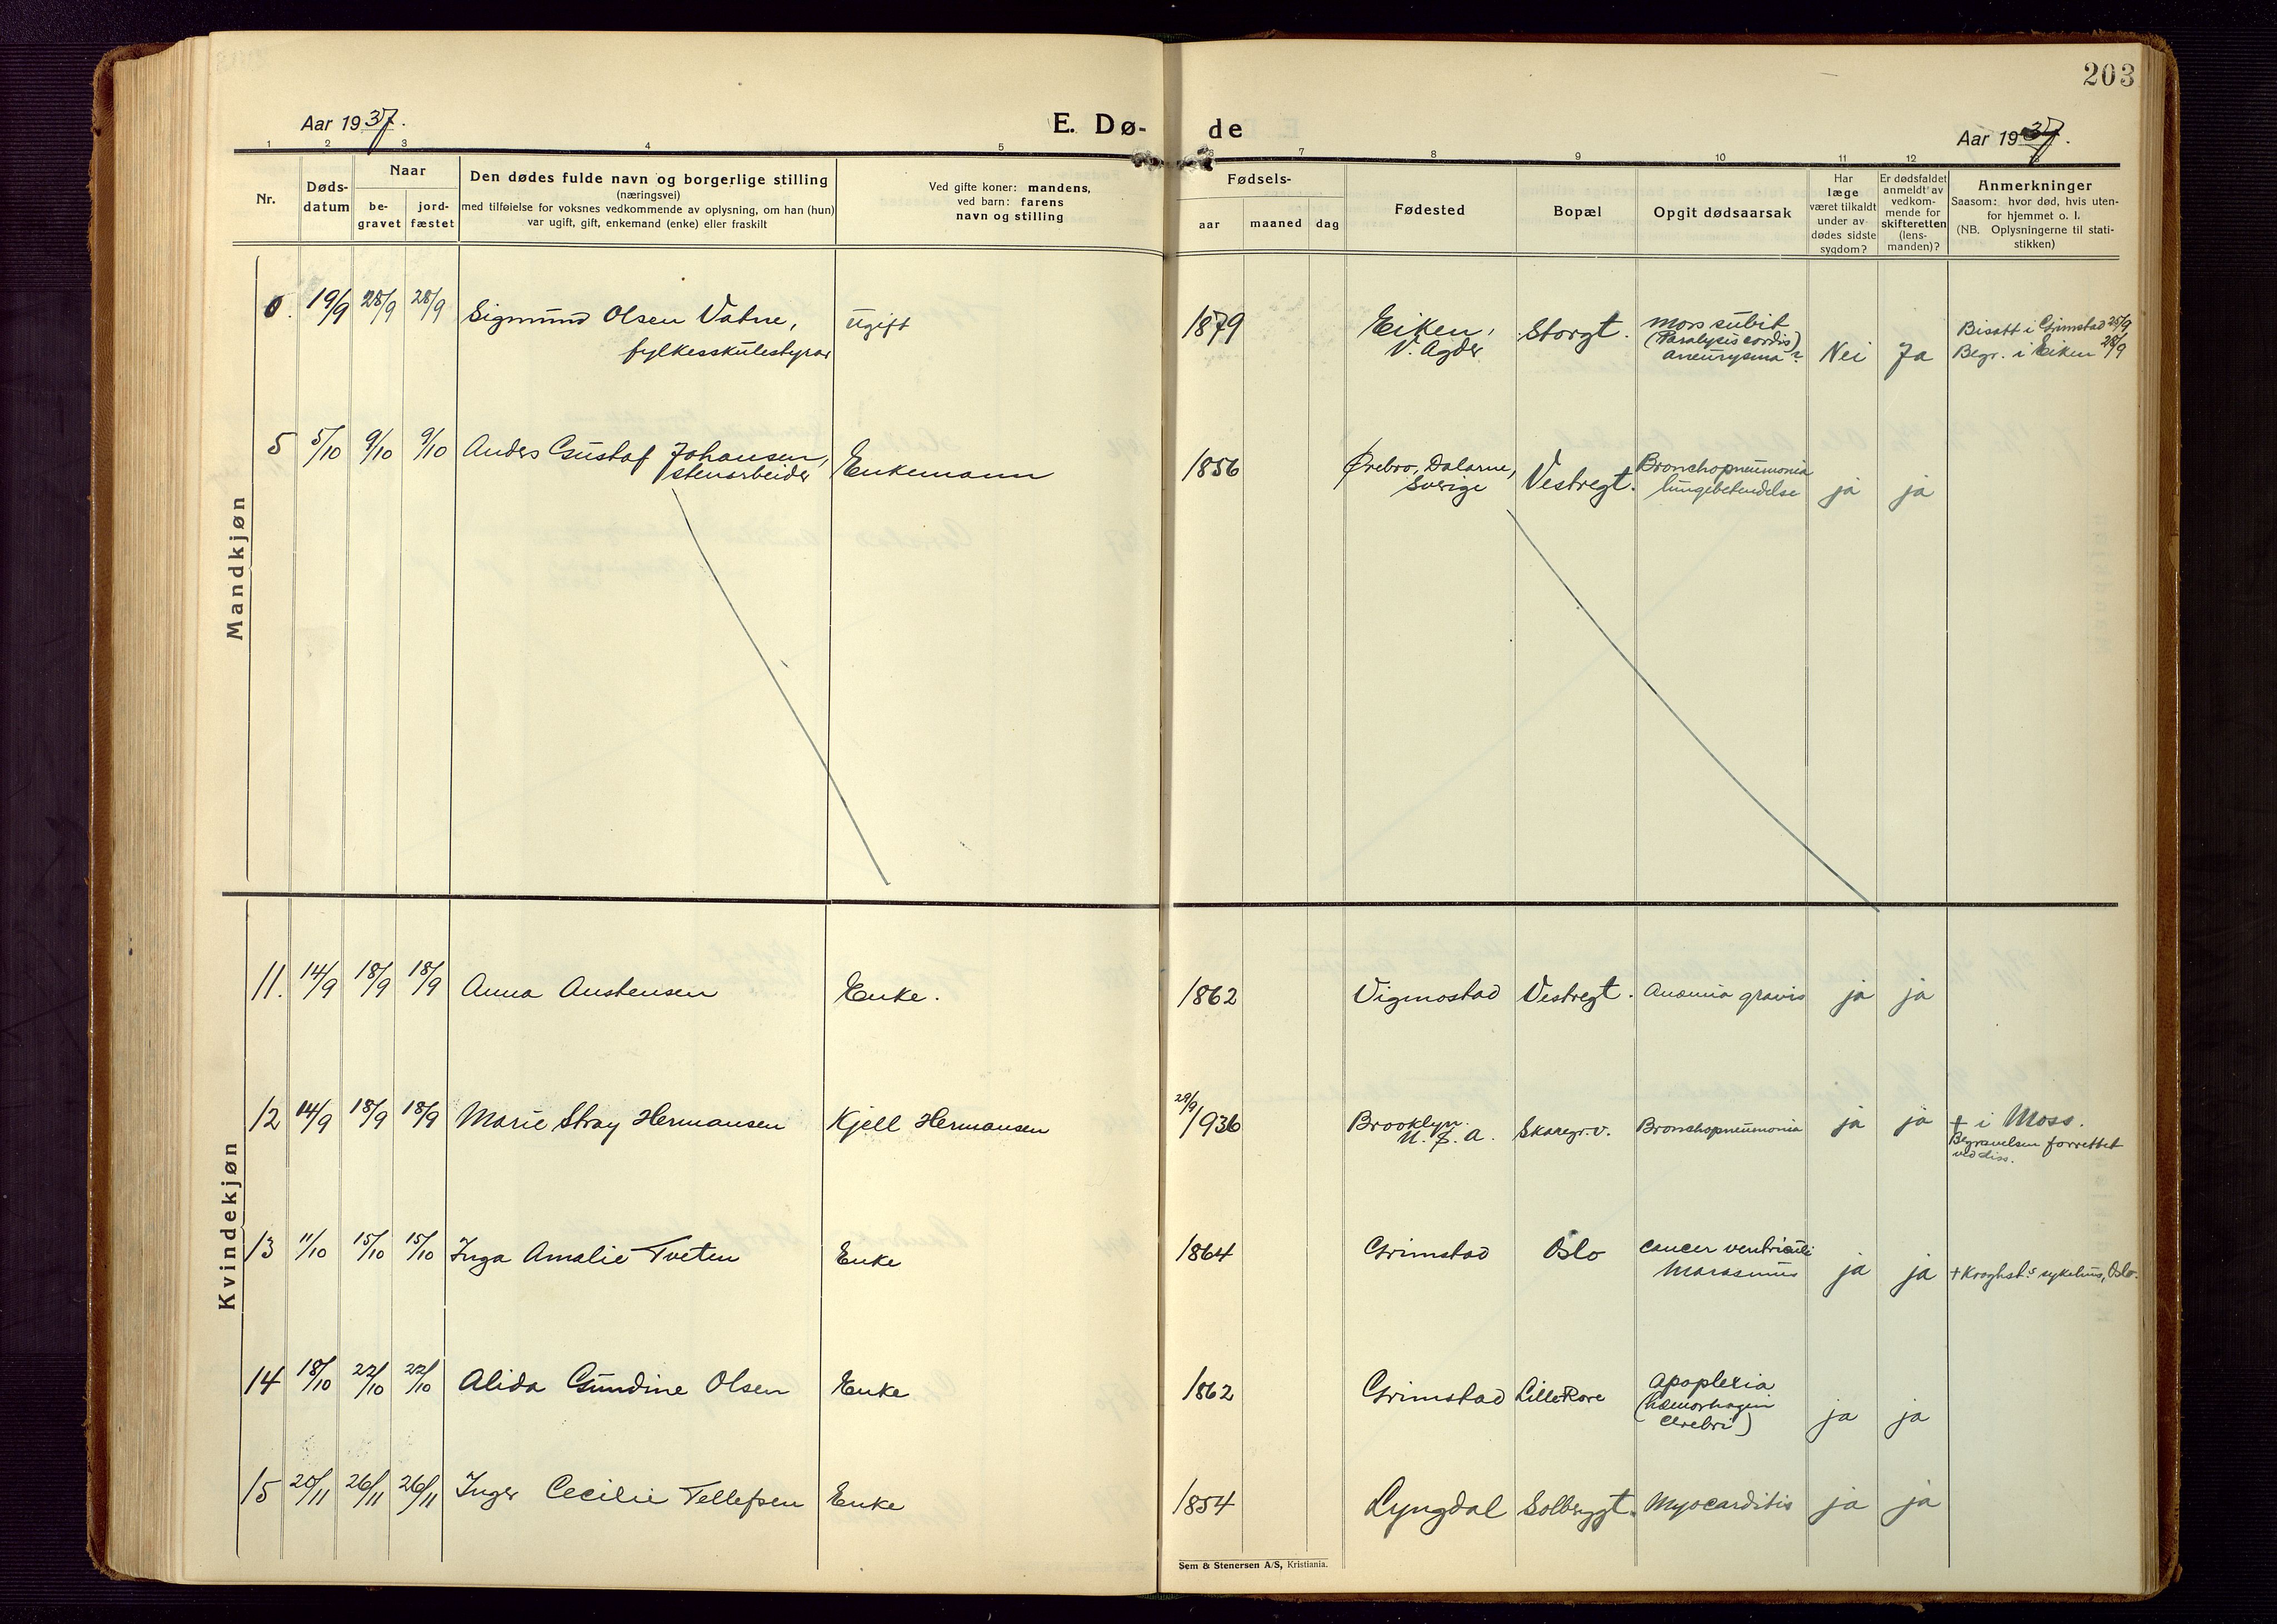 203
Aar 1937.
E. Dø- de
Aar 1937.
1 2 3 4 5 6 7 8 9 10 11 12
Nr.
Døds-
datum
Naar
be-
gravet
jord-
fæstet
Den dødes fulde navn og borgerlige stilling
(næringsvei)
med tilføielse for voksnes vedkommende av oplysning, om han (hun)
var ugift, gift, enkemand (enke) eller fraskilt
Ved gifte koner: mandens,
ved barn: farens
navn og stilling
Fødsels-
aar maaned dag
Fødested
Bopæl
Opgit dødsaarsak
Har
læge
været tilkaldt
under av-
dødes sidste
sygdom?
Er dødsfaldet
anmeldt av
vedkom-
mende for
skifteretten
(lens-
manden)?
Anmerkninger
Saasom: hvor død, hvis uten-
for hjemmet o. l.
(NB. Oplysningerne til stati-
stikken)
Mandkjøn
19/9 28/9 28/9 Sigmund Olsen Vatne, ugift 1879 Eiken, Storgt. Mors subit
fylkesskulestyrar V. Agder (Paralysis cordis)
aneurysma? Nei Ja
Bisatt i Grimstad 25/9
Begr. i Eiken 28/9
5 5/10 9/10 9/10 Anders Gustaf Johansen, Enkemann 1856 Ørebro, Dalarne, Vestregt. Bronchopneumonia
stenarbeider Sverige lungebetendelse ja ja
Kvindekjøn
11. 14/9 18/9 18/9 Anna Austensen Enke. 1862 Vigmostad Vestregt. Anæmia gravis ja ja
12 14/9 18/9 18/9 Marie Stray Hermansen Kjell Hermansen 28/9 1936 Brooklyn. Skaregr.v. Bronchopneumonia ja ja † i Moss.
U. S. A. Begravelsen forrettet
ved diss.
13 11/10 15/10 15/10 Inga Amalie Tveten Enke 1864 Grimstad Oslo Cancer ventriculi
Marasmus ja ja † Kroghst.s sykehus, Oslo.
14 18/10 22/10 22/10 Alida Gundine Olsen Enke 1862 Grimstad Lillerore Apoplexia
(hæmorhagia
cerebri) ja ja
15 20/11 26/11 26/11 Inger Cecilie Tellefsen Enke 1854 Lyngdal Solberggt. Myocarditis ja ja
Sem & Stenersen A/S, Kristiania.